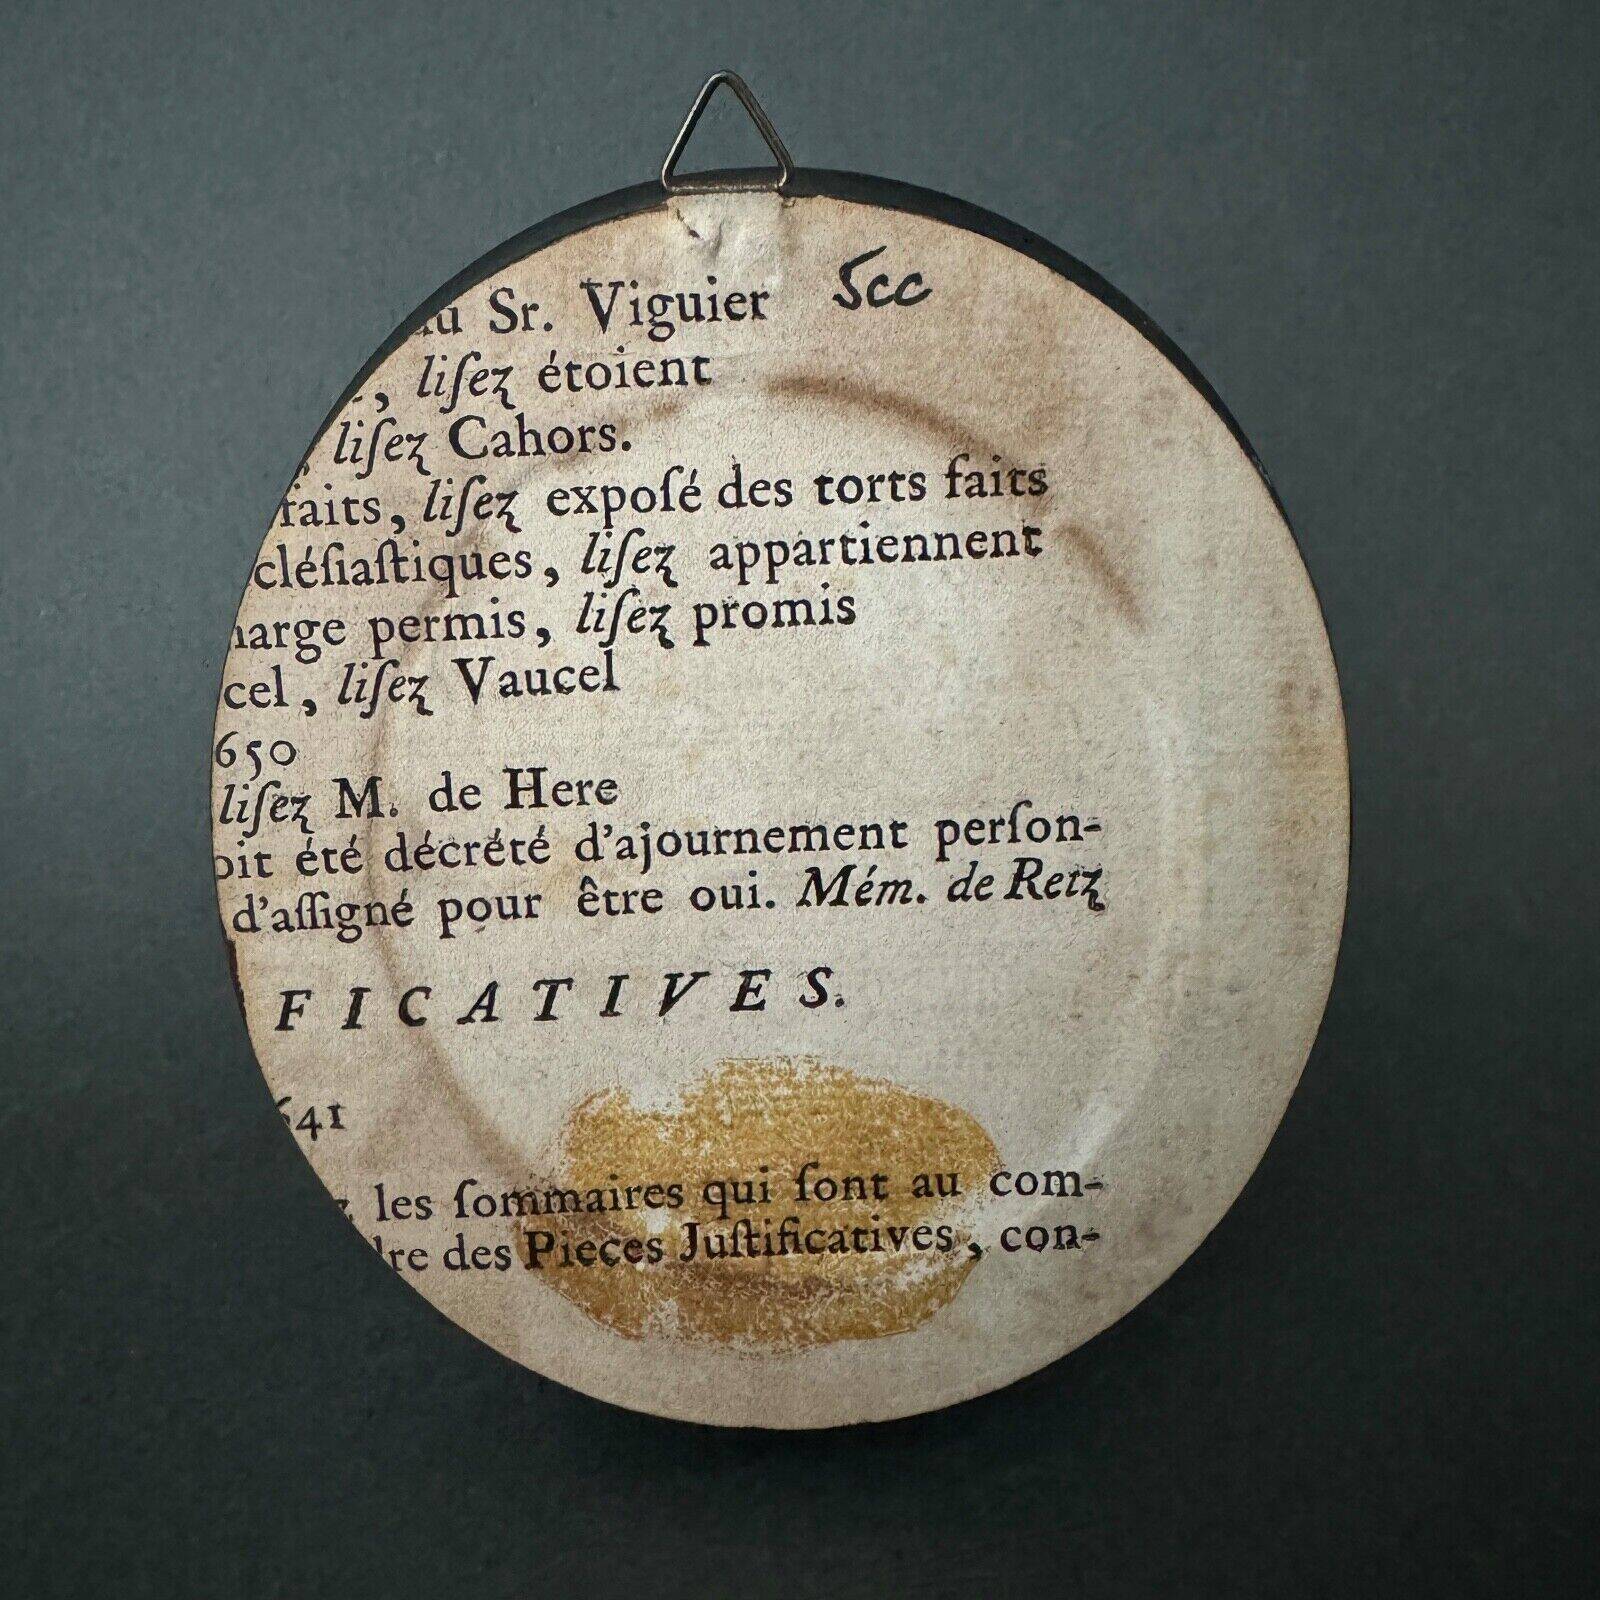 au Sr. Viguier 5cc
, liſez étoient
, liſez Cahors.
faits, liſez expoſé des torts faits
cléſiaſtiques, liſez appartiennent
arge permis, liſez promis
cel, liſez Vaucel
650
liſez M. de Here
oit été décrété d'ajournement perſon-
d'aſſigné pour être oui. Mém. de Retz
FICATIVES.
641
z les ſommaires qui ſont au com-
dre des Pieces Juſtificatives, con-